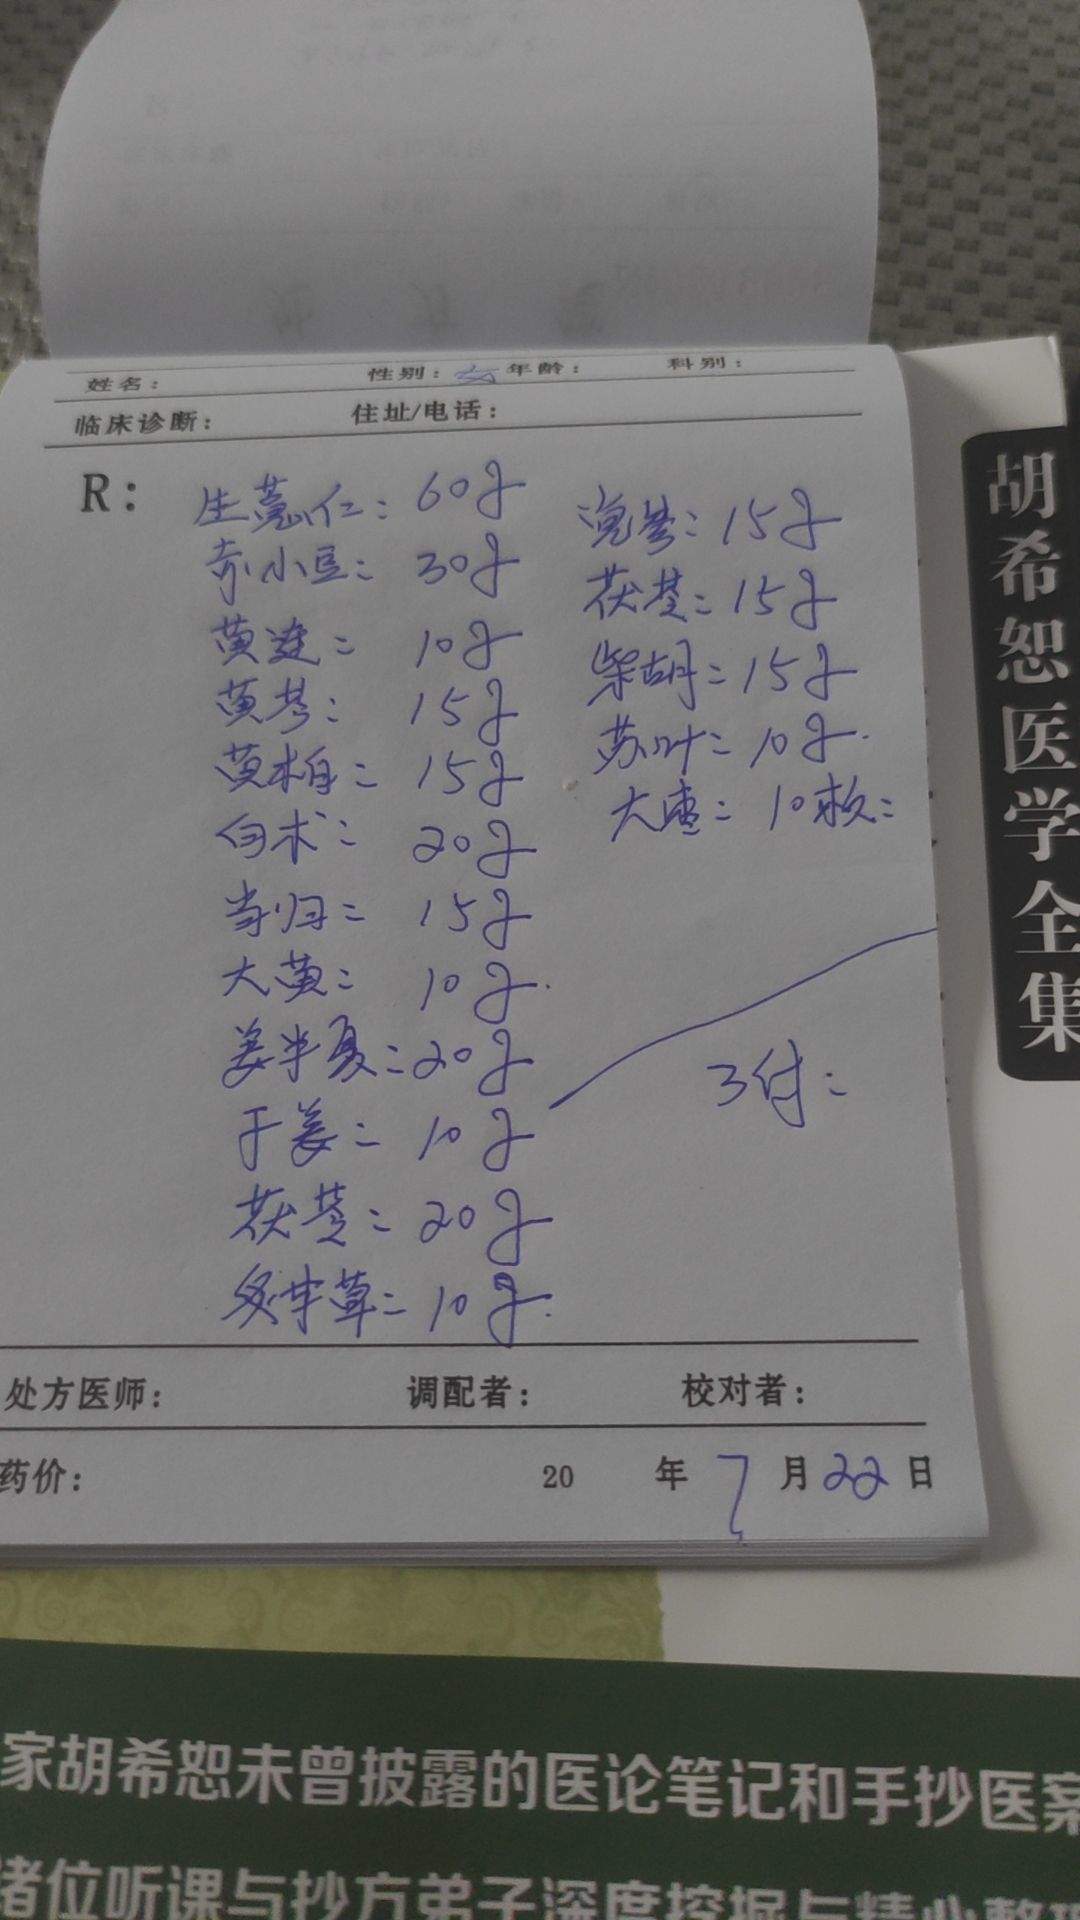 姓名： 性别：女 年龄： 科别：
临床诊断： 住址/电话：
R：
生薏仁：60g
赤小豆：30g
黄连：10g
黄芩：15g
黄柏：15g
白术：20g
当归：15g
大黄：10g.
姜半夏：20g
干姜：10g
茯苓：20g
炙甘草：10g.
15g
茯苓：15g
柴胡：15g
苏叶：10g.
大枣：10枚：
3付：
处方医师： 调配者： 校对者：
药价： 20 年 7 月 22 日
胡希恕医学全集
家胡希恕未曾披露的医论笔记和手抄医案
诸位听课与抄方弟子深度挖掘与精心整理